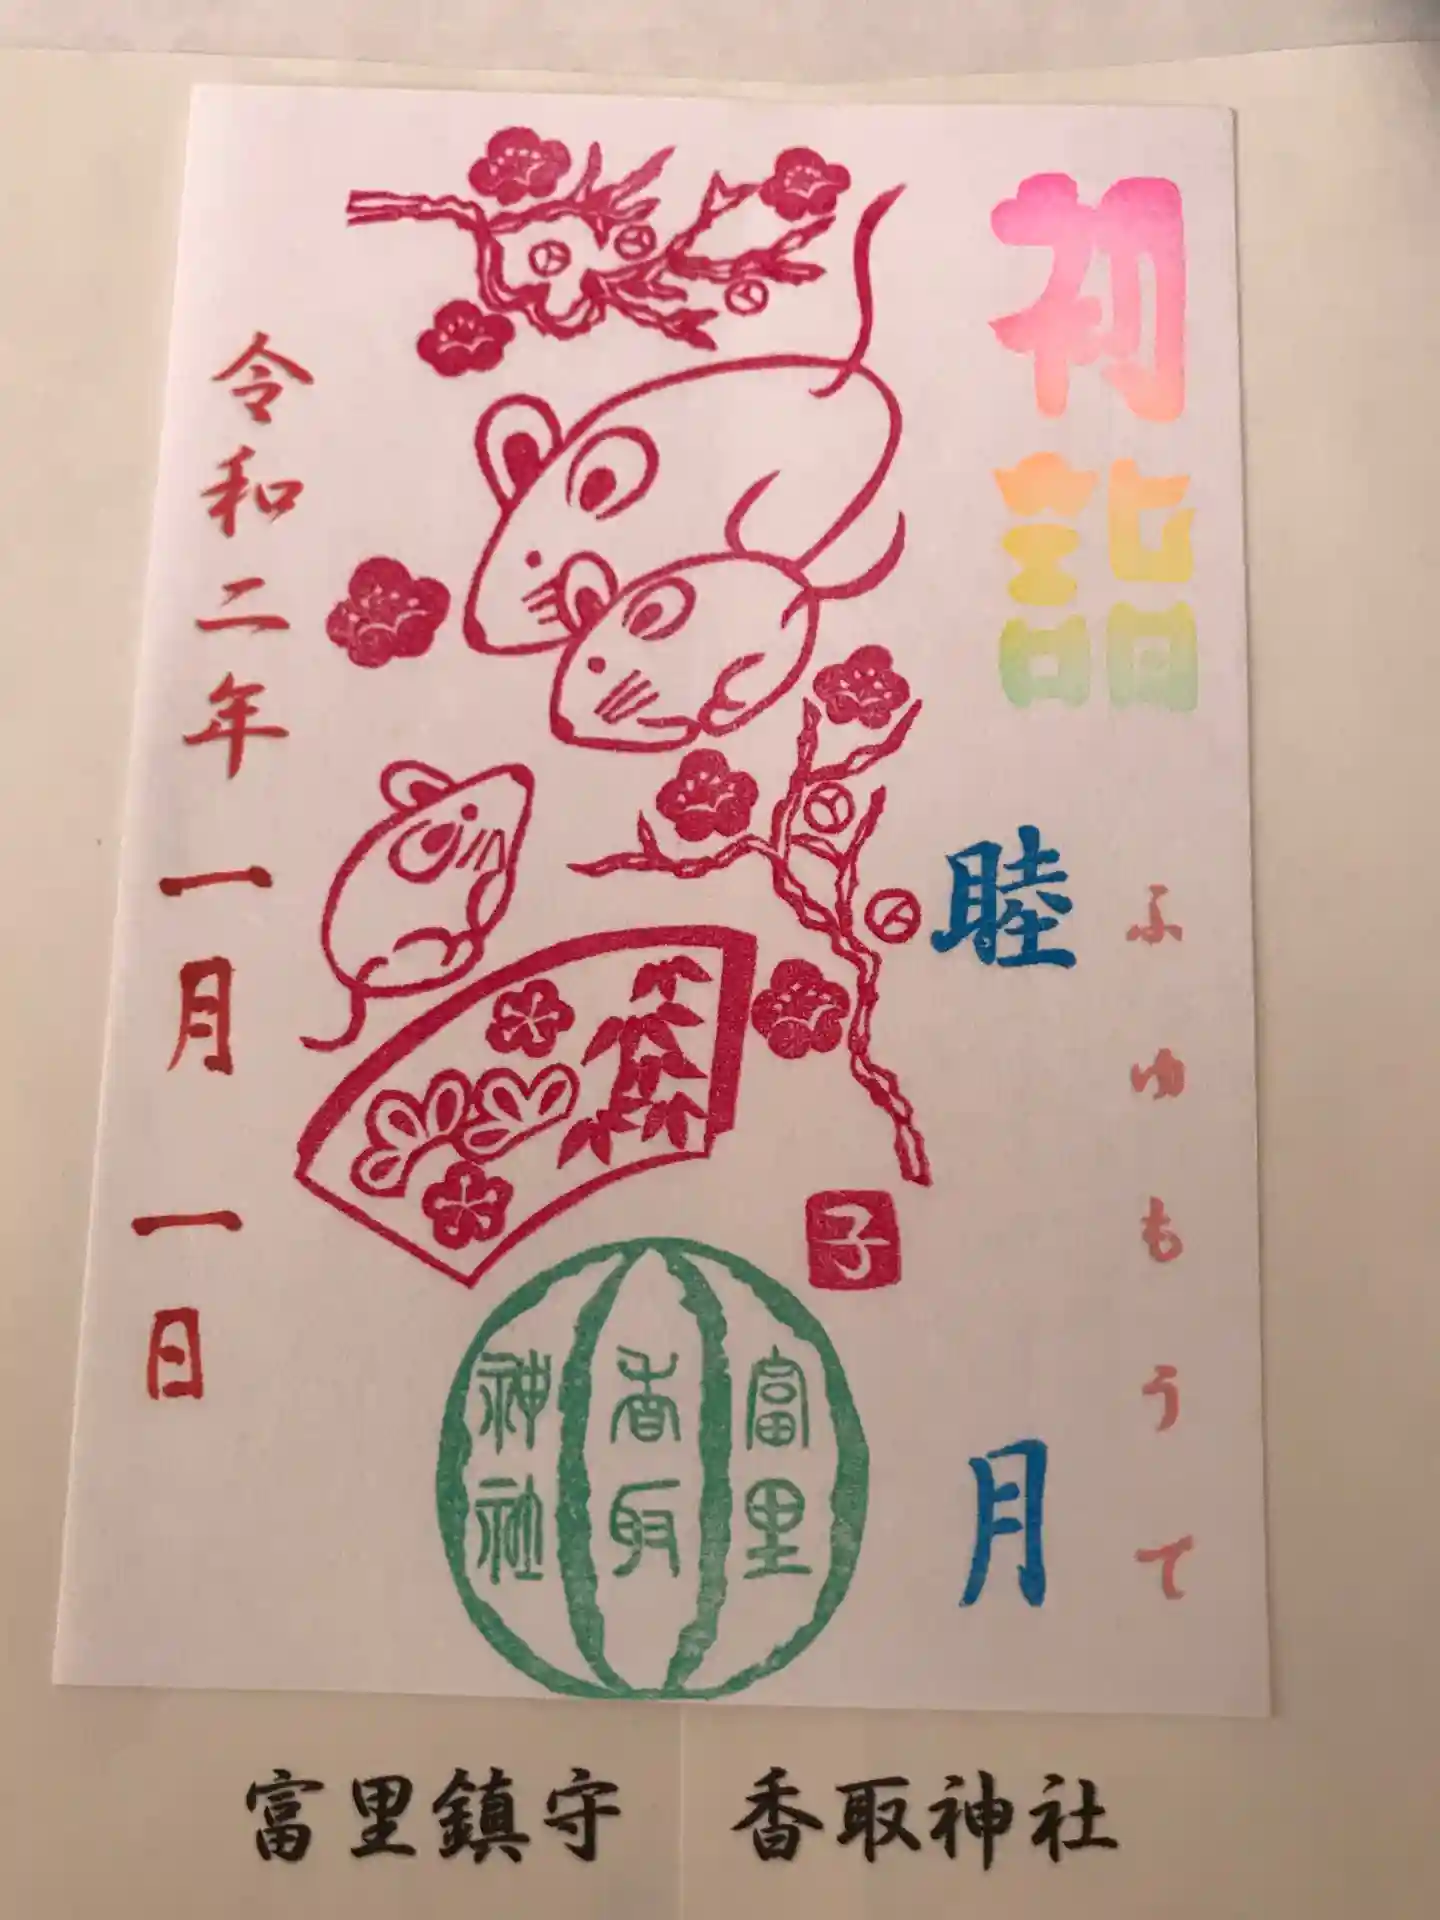 初詣
ふゆもうで
睦月
子
富里
香取
神社
令和二年一月一日
富里鎮守 香取神社